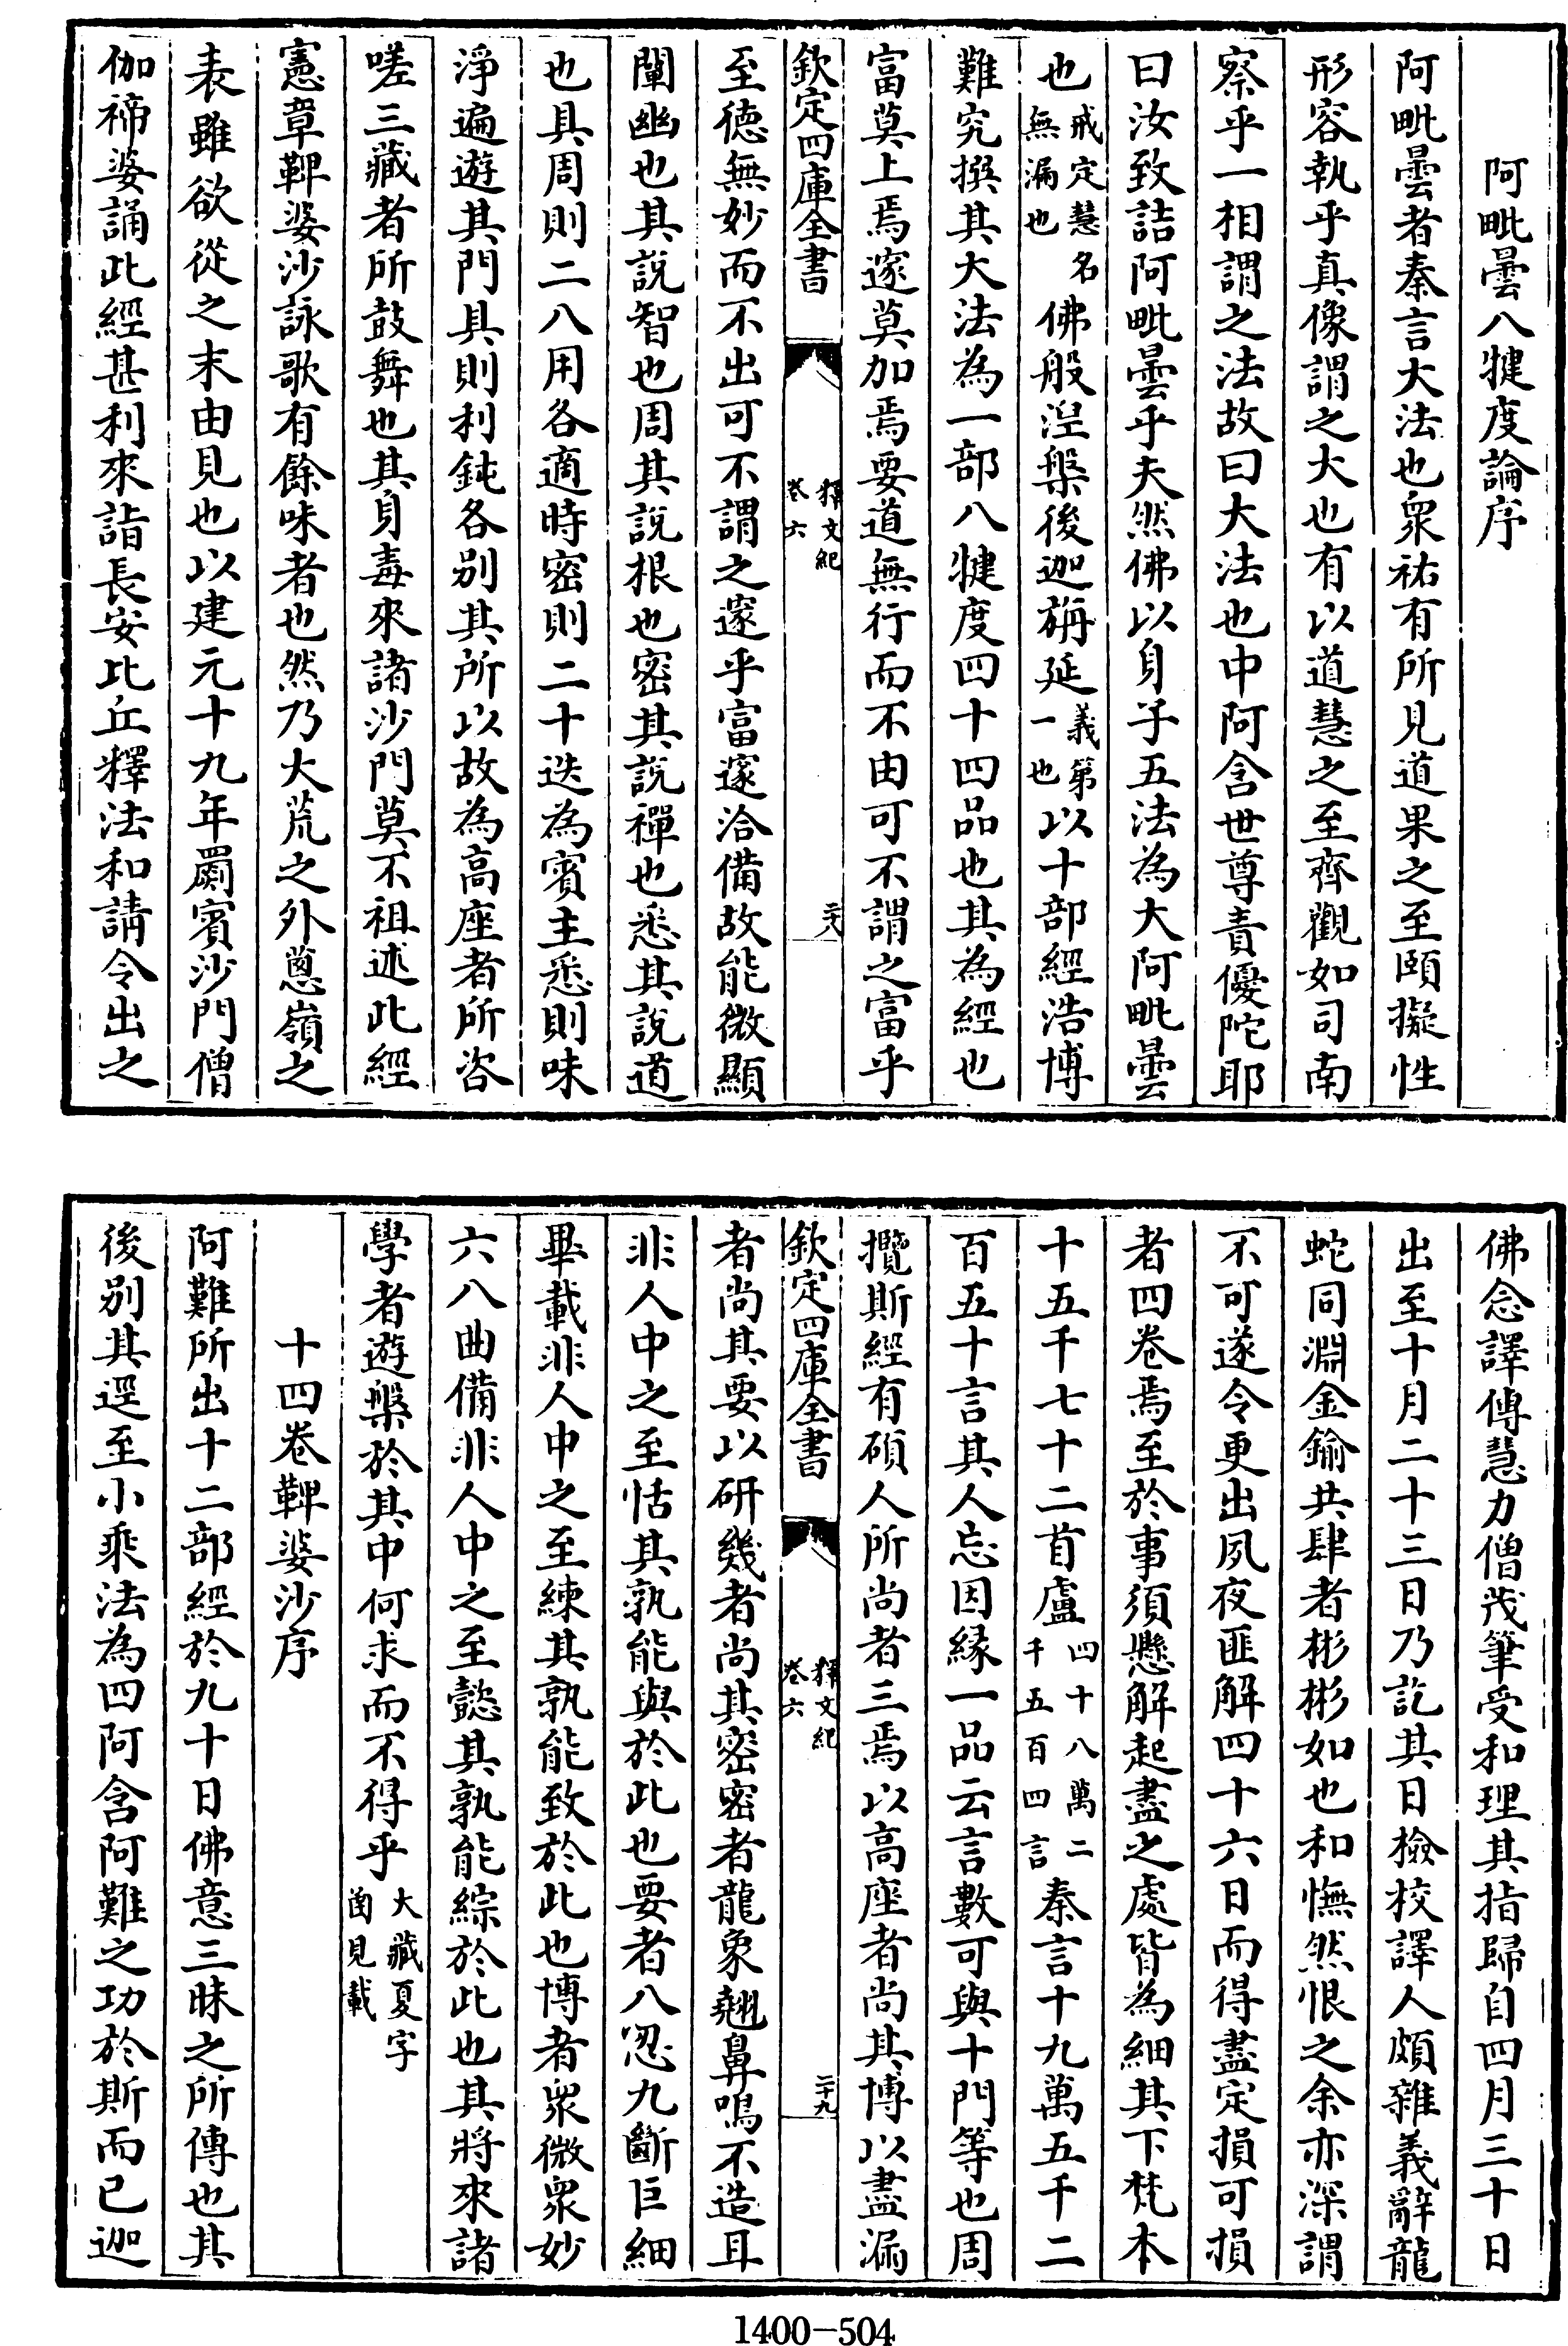 阿毗曇八犍度論序
阿毗曇者秦言大法也衆祐有所見道果之至賾擬性
形容執乎真像謂之大也有以道慧之至齊觀如司南
察乎一相謂之法故曰大法也中阿含世尊責優陀耶
曰汝致詰阿毗曇乎夫然佛以身子五法為大阿毗曇
也戒定慧名無漏也佛般涅槃後迦旃延義第一也以十部經浩博
難究撰其大法為一部八犍度四十四品也其為經也
富莫上焉邃莫加焉要道無行而不由可不謂之富乎
欽定四庫全書 釋文紀卷六 二十八
至德無妙而不出可不謂之邃乎富邃洽備故能微顯
闡幽也其說智也周其說根也密其說禪也悉其說道
也具周則二八用各適時密則二十迭為賓主悉則味
淨遍遊其門具則利鈍各別其所以故為高座者所咨
嗟三藏者所鼓舞也其身毒來諸沙門莫不祖述此經
憲章鞞婆沙詠歌有餘味者也然乃大荒之外蔥嶺之
表雖欲從之末由見也以建元十九年罽賓沙門僧
伽禘婆誦此經甚利來詣長安比丘釋法和請令出之
佛念譯傳慧力僧茂筆受和理其指歸自四月三十日
出至十月二十三日乃訖其日撿校譯人頗雜義辭龍
蛇同淵金鍮共肆者彬彬如也和憮然恨之余亦深謂
不可遂令更出夙夜匪解四十六日而得盡定損可損
者四卷焉至於事須懸解起盡之處皆為細其下梵本
十五千七十二首盧四十八萬二千五百四言秦言十九萬五千二
百五十言其人忘因縁一品云言數可與十門等也周
攬斯經有碩人所尚者三焉以高座者尚其博以盡漏
欽定四庫全書 釋文紀卷六 二十九
者尚其要以研幾者尚其密密者龍象翹鼻鳴不造耳
非人中之至恬其孰能與於此也要者八忍九斷巨細
畢載非人中之至練其孰能致於此也博者衆微衆妙
六八曲備非人中之至懿其孰能綜於此也其將來諸
學者遊槃於其中何求而不得乎大藏夏字函見載
十四卷鞞婆沙序
阿難所出十二部經於九十日佛意三昧之所傳也其
後別其逕至小乘法為四阿含阿難之功於斯而已迦
1400-504